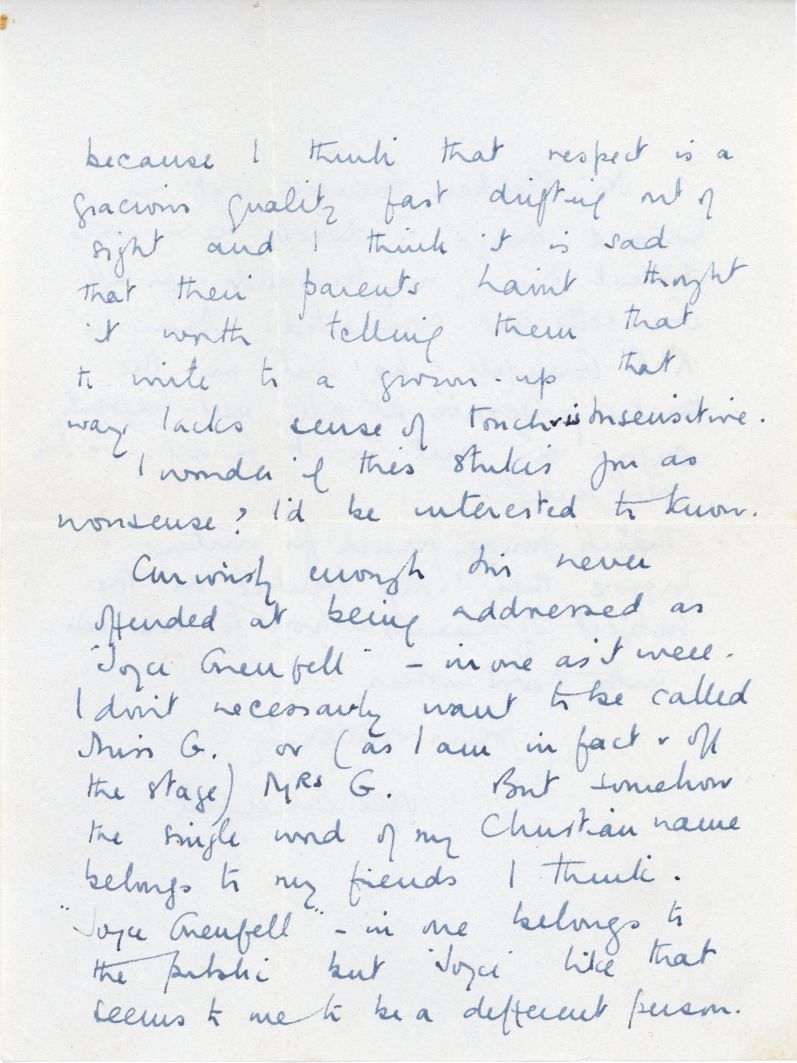 because I think that respect is a
gracious quality fast drifting out of
sight and I think it is sad
that their parents havnt thought
it worth telling them that
to write to a grown-up that
way lacks sense of touch & is insensitive.
I wonder if this strikes you as
nonsense? I'd be interested to know.
Curiously enough I'm never
offended at being addressed as
"Joyce Grenfell" – in one as it were.
I don't necessarily want to be called
Miss G. or (as I am in fact & off
the stage) Mrs G. But somehow
the single word of my Christian name
belongs to my friends I think.
"Joyce Grenfell" – in one belongs to
the public but 'Joyce' like that
seems to me to be a different person.